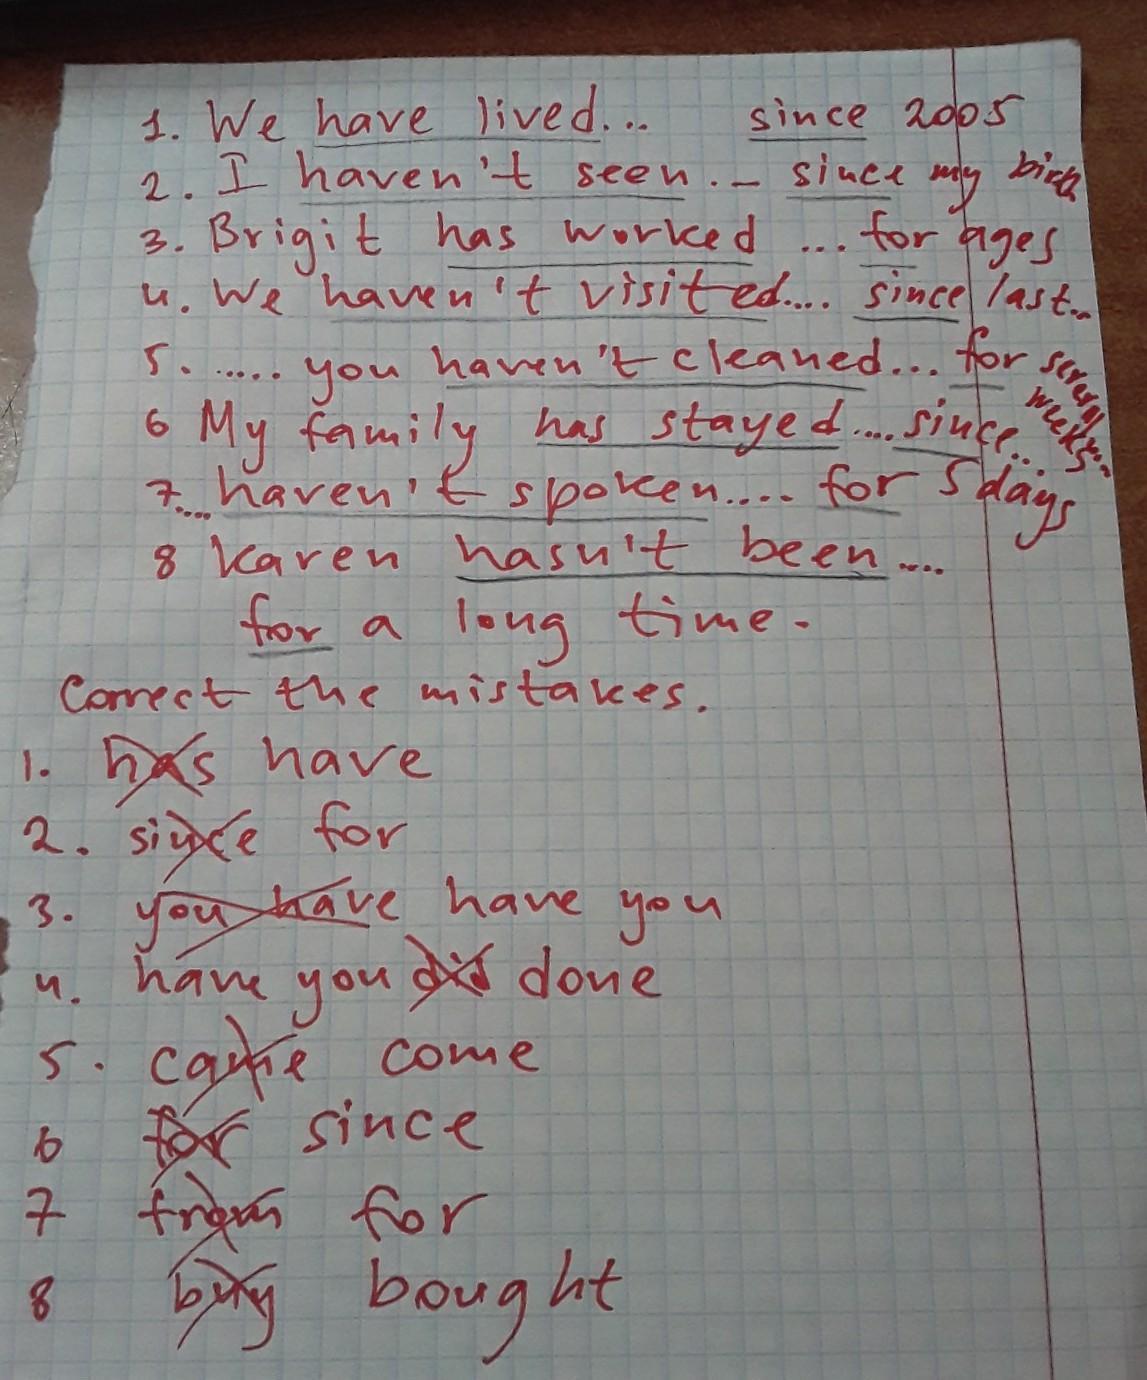 1. We have lived... since 2005
2. I haven't seen... since my birth
3. Brigit has worked ... for ages
4. We haven't visited.... since last...
5. ...... you haven't cleaned... for several weeks...
6 My family has stayed.... since...
7.... haven't spoken.... for 5 days
8 Karen hasn't been ....
for a long time.
Correct the mistakes.
1. has have
2. since for
3. you have have you
4. have you did done
5. came come
6 for since
7 from for
8 buy bought